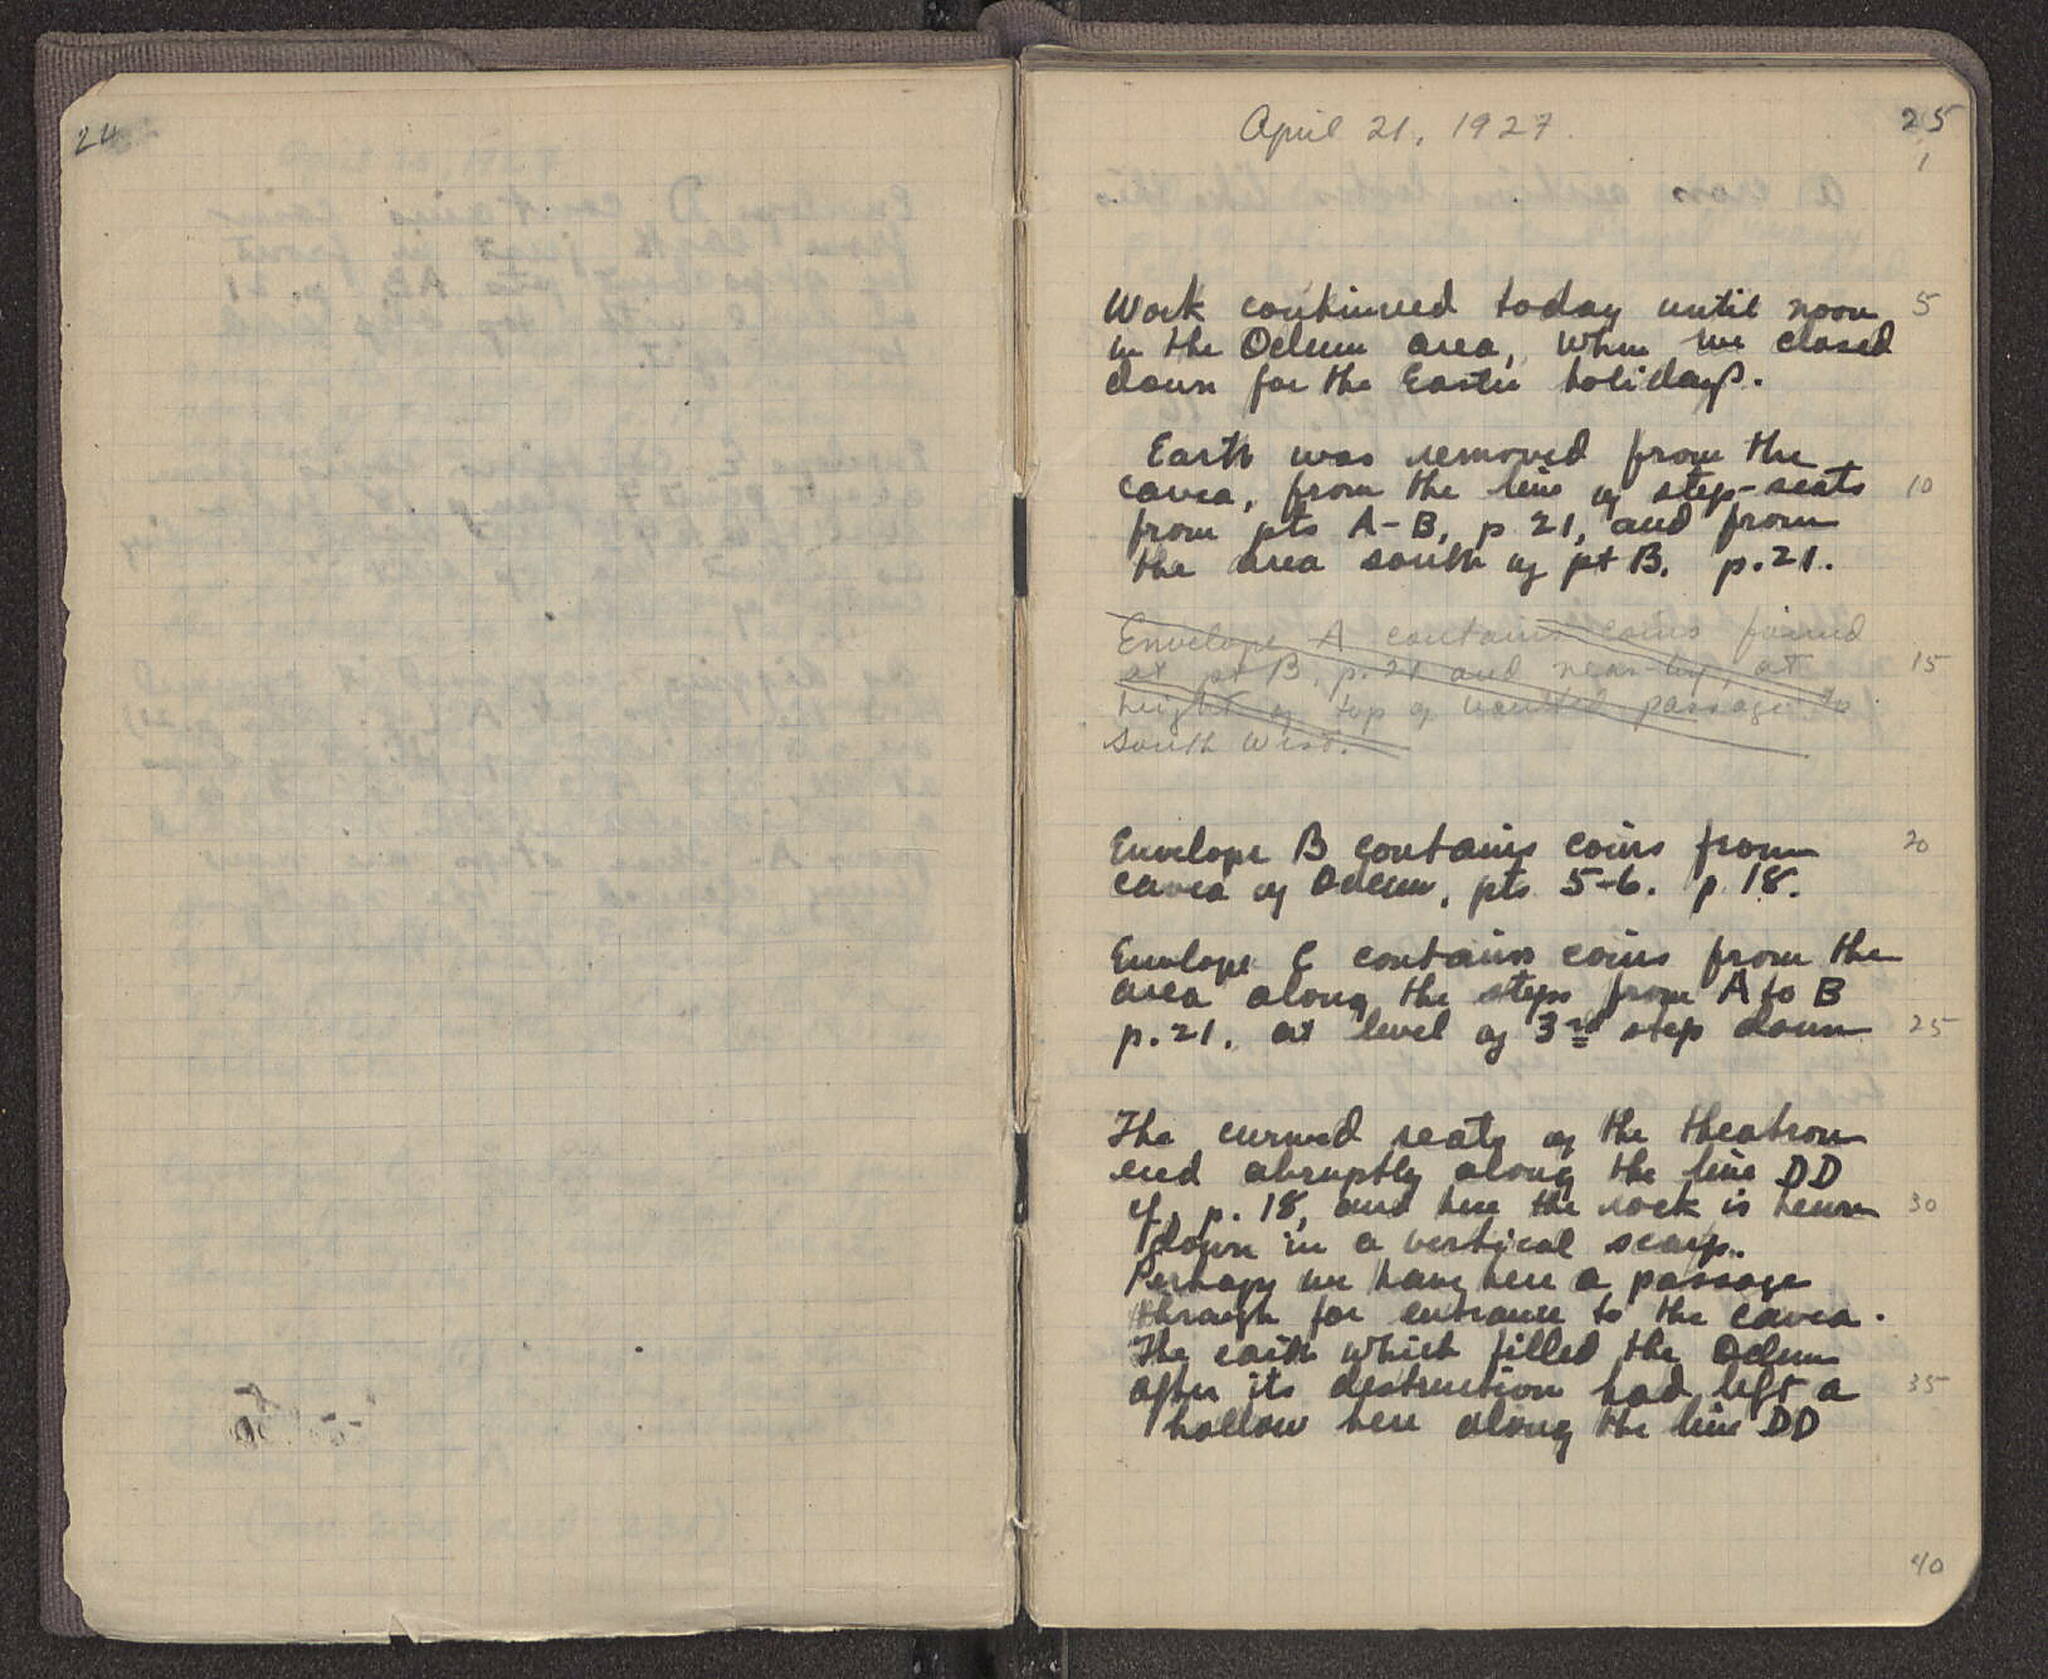 24
April 21, 1927.
25
1
Work continued today until noon 5
in the Odeum area, when we closed
down for the Easter holidays.
Earth was removed from the
cavea, from the line of step-seats 10
from pts A-B, p 21, and from
the area south of pt B. p.21.
Envelope A contains coins found
at pt B, p.21 and near-by, at 15
height of top of vaulted passage to
South West.
Envelope B contains coins from 20
cavea of Odeum, pts 5-6. p. 18.
Envelope C contains coins from the
area along the steps from A to B
p.21. at level of 3rd step down 25
The curved seats of the theatron
end abruptly along the line DD
cf. p. 18, and here the rock is hewn 30
down in a vertical scarp.
Perhaps we have here a passage
through for entrance to the cavea.
The earth which filled the Odeum
after its destruction had left a 35
hollow here along the line DD
40